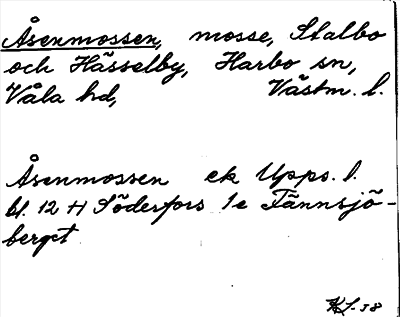 Åsenmossen, mosse, Stalbo
och Hässelby, Harbo sn,
Våla hd, Västm. l.
Åsenmossen ek Upps. l.
bl. 12 H Söderfors 1e Tännsjö-
berget